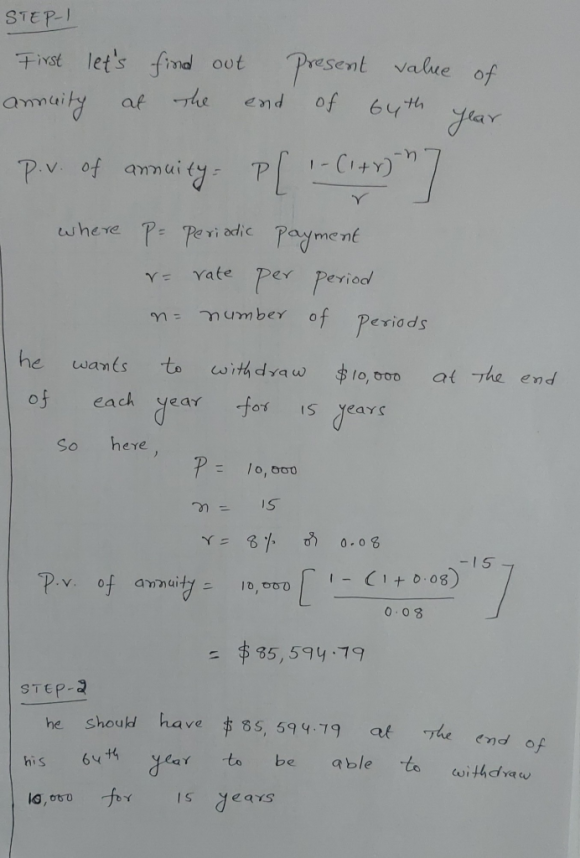 STEP-1
First let's find out Present value of
annuity at the end of 64th year
P.V. of annuity = P[ 1-(1+r)^-n / r ]
where P = Periodic Payment
r = rate per Period
n = number of Periods
he wants to withdraw $10,000 at the end
of each year for 15 years
So here,
P = 10,000
n = 15
r = 8% or 0.08
P.v. of annuity = 10,000 [ 1 - (1+0.08)^-15 / 0.08 ]
= $85,594.79
STEP-2
he should have $85,594.79 at the end of
his 64th year to be able to withdraw
10,000 for 15 years